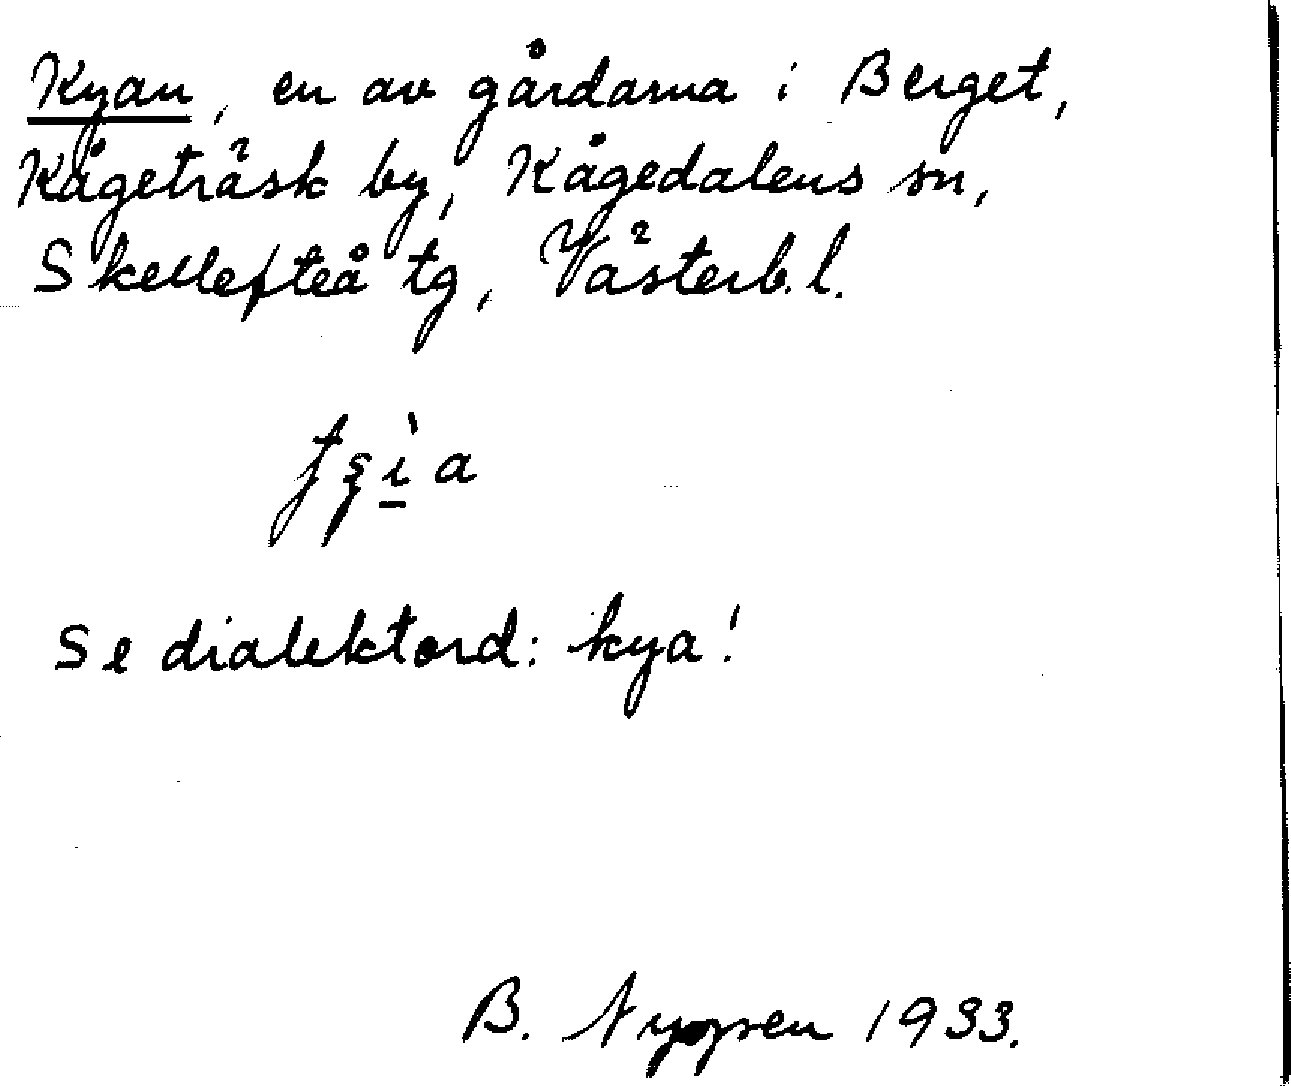 Kyan, en av gårdarna i Berget,
Kågeträsk by, Kågedalens sn,
Skellefteå tg, Västerb. l.
Se dialektord: kya!
B. 1933.